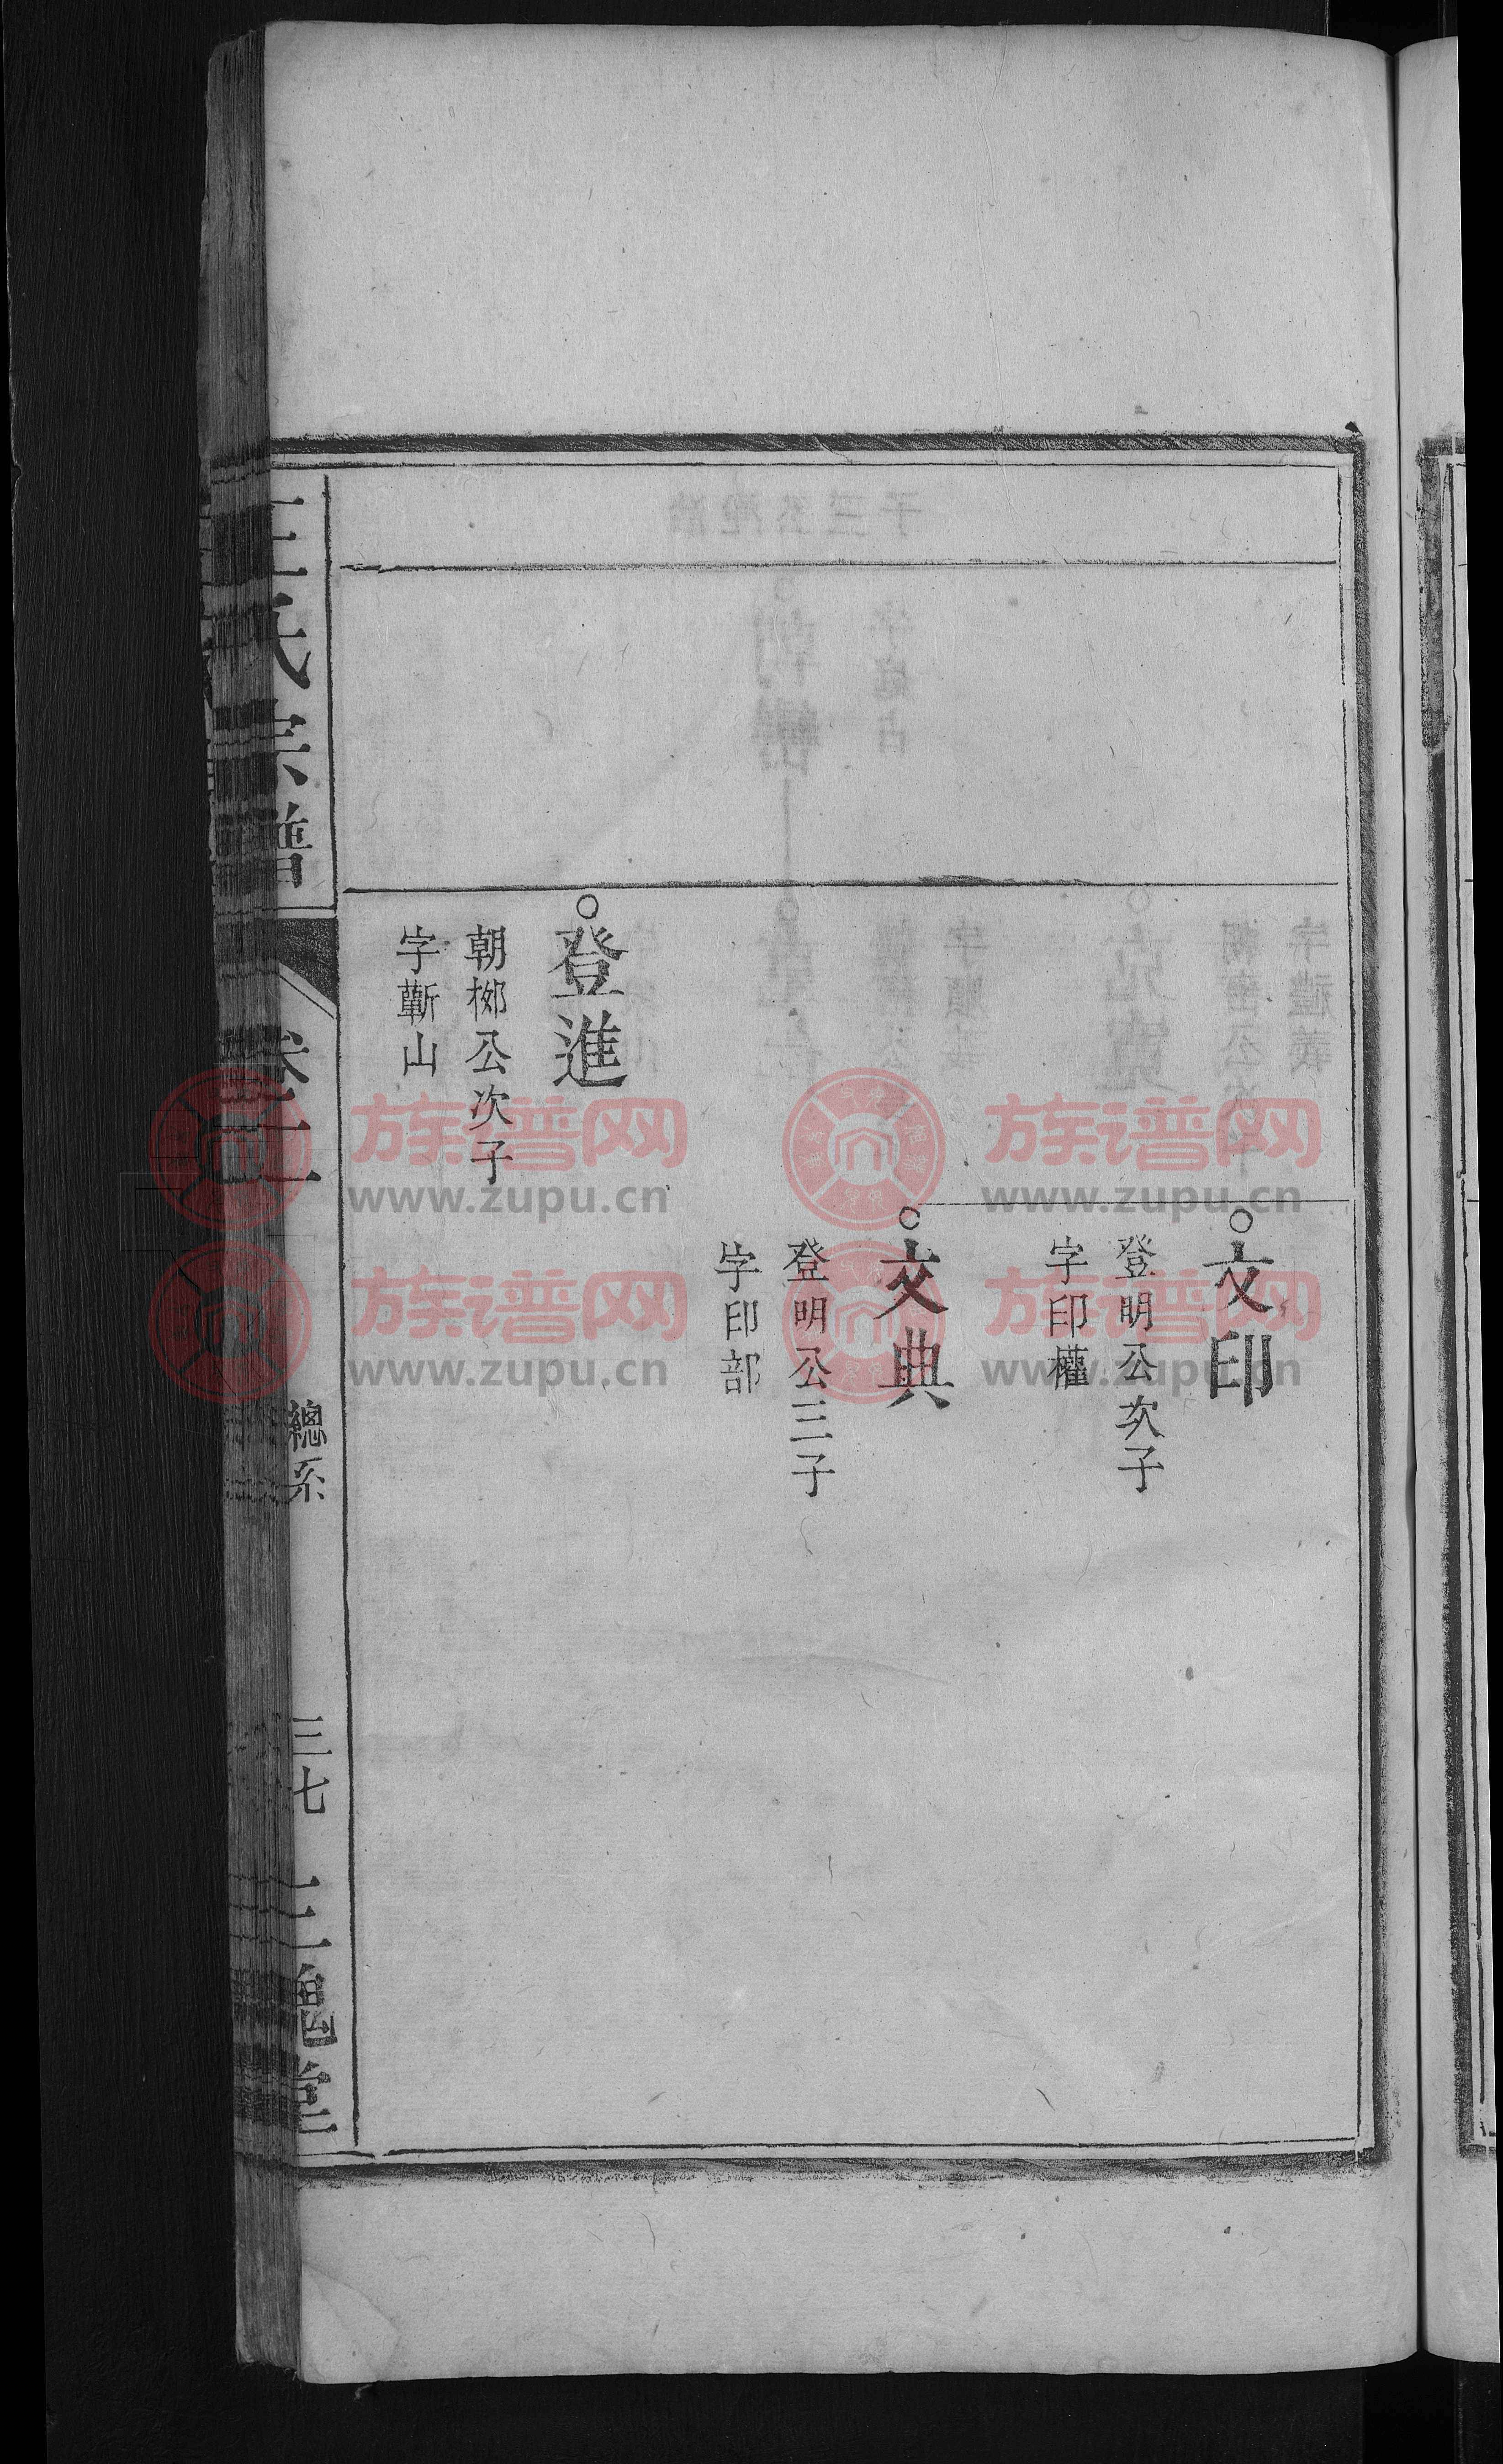 文印
登明公次子
字印權
文典
登明公三子
字印部
登進
朝梛公次子
字蘄山
王氏宗譜
總系
三七
三槐堂
族谱网
www.zupu.cn
族谱网
www.zupu.cn
族谱网
www.zupu.cn
族谱网
www.zupu.cn